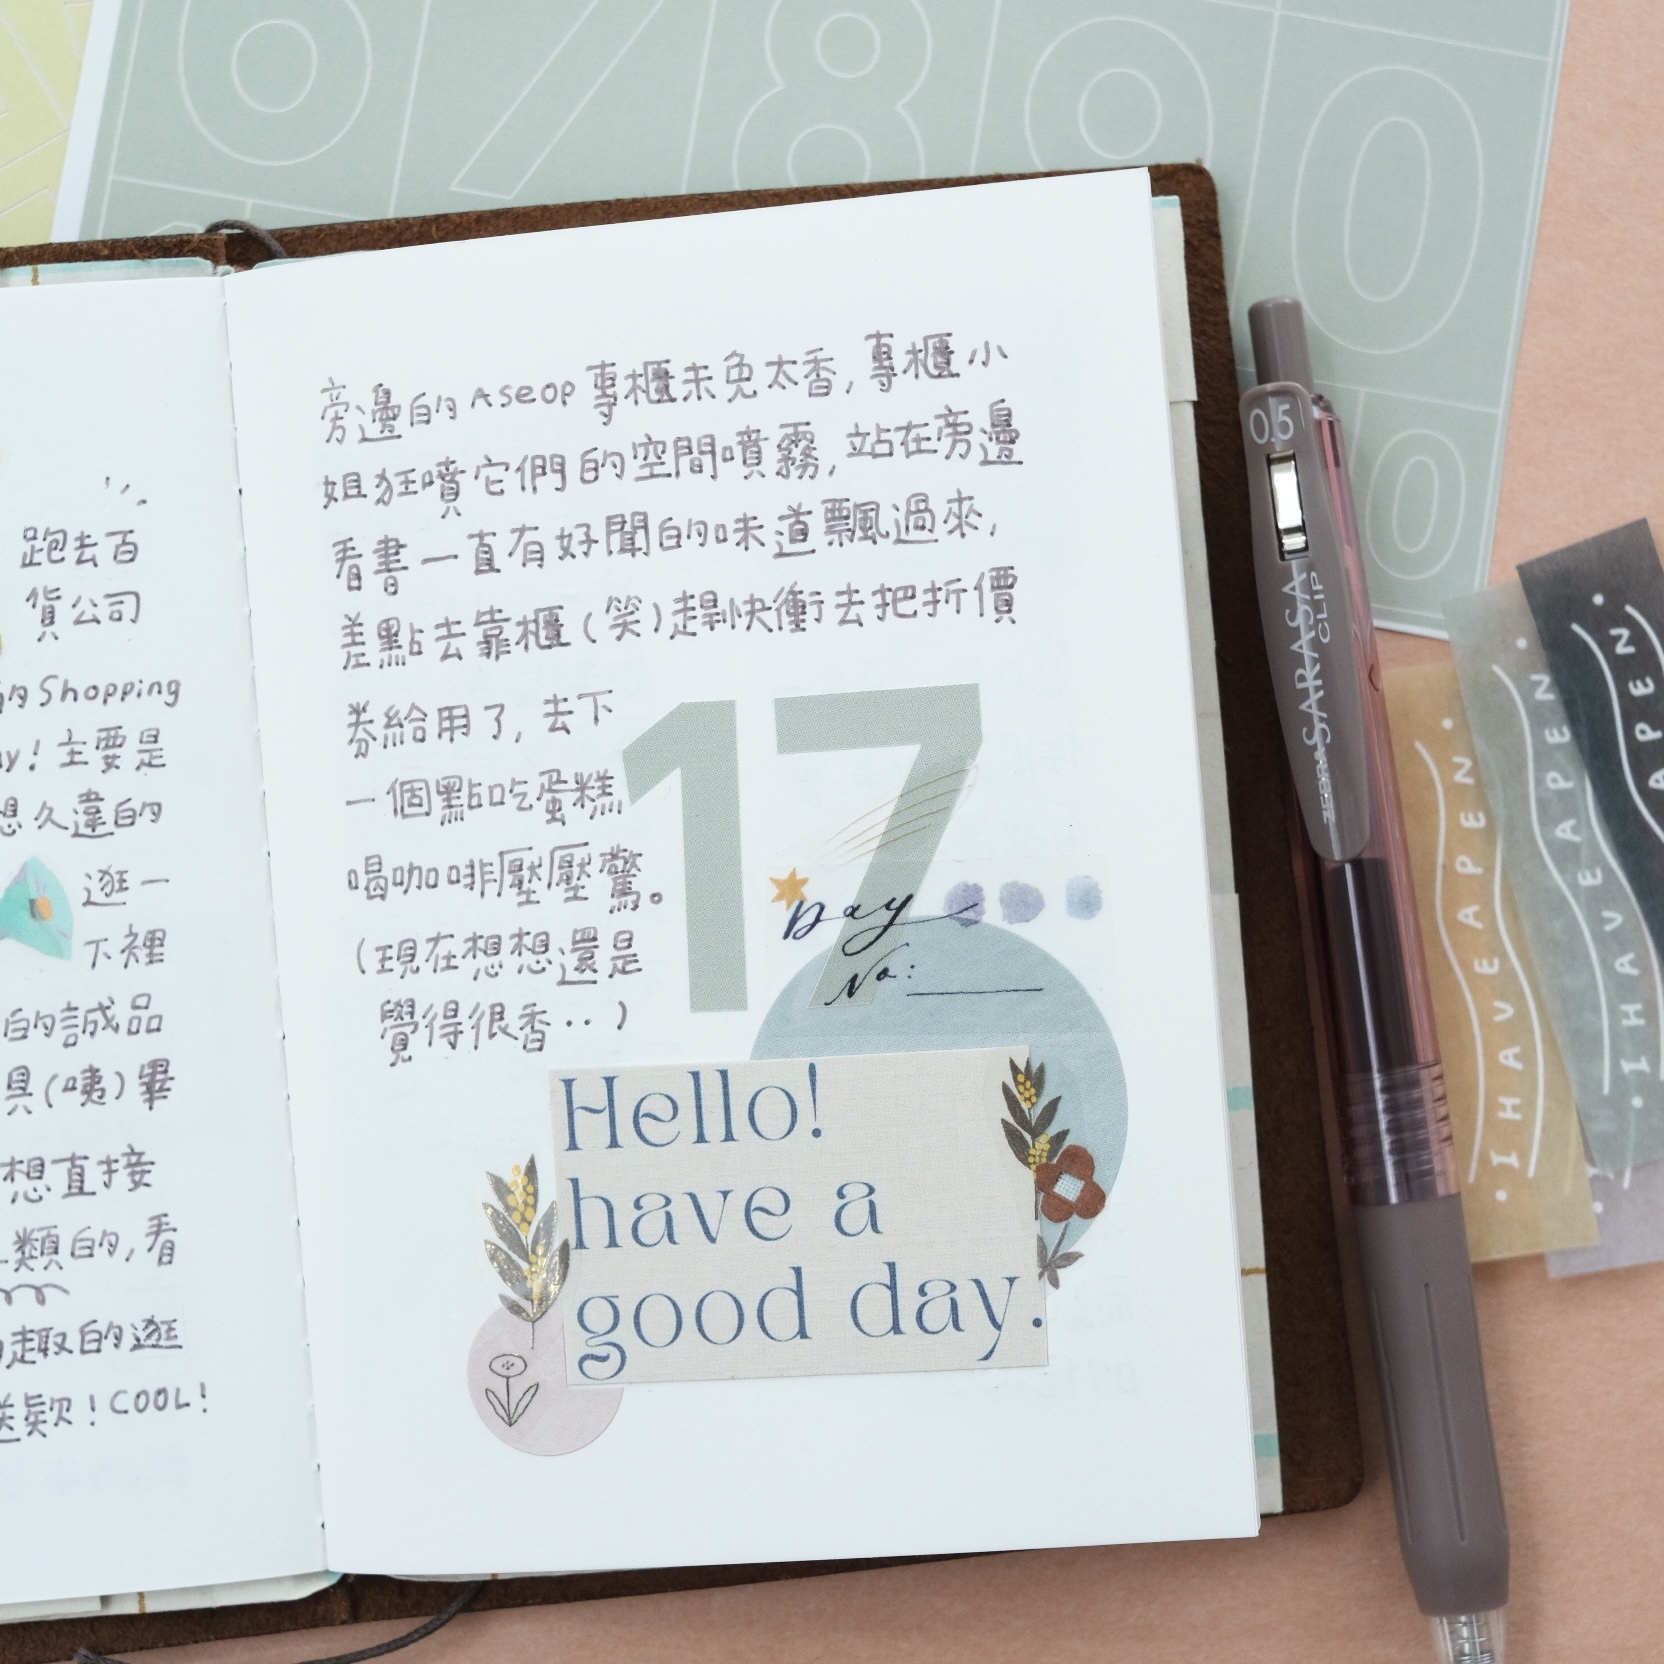 跑去百
貨公司
的Shopping
ay！主要是
想久違的
逛一
下裡
的誠品
具(咦)畢
想直接
類的,看
趣的逛
送欸！COOL！
旁邊的Aseop專櫃未免太香,專櫃小
姐狂噴它們的空間噴霧,站在旁邊
看書一直有好聞的味道飄過來,
差點去靠櫃(笑)趕快衝去把折價
券給用了,去下
一個點吃蛋糕
喝咖啡壓壓驚。
(現在想想還是
覺得很香..)
17
Day
No:
Hello!
have a
good day.
6 7 8 9 0
0
0.5
ZEBRA SARASA
CLIP
I HAVE A PEN
I HAVE A PEN
I HAVE A PEN
A PEN